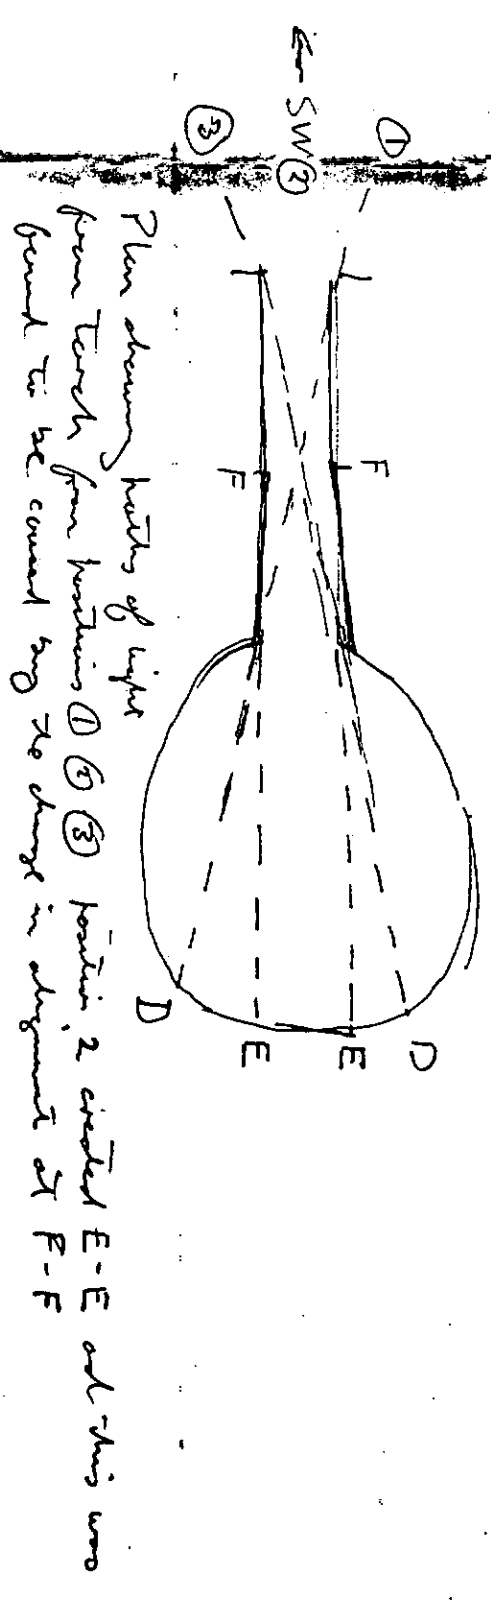 ← SW
① ② ③
J J
F F
D E E D
Plan showing paths of light
from torch from positions ① ② ③ position 2 created E-E and this was
found to be caused by the change in alignment at F-F